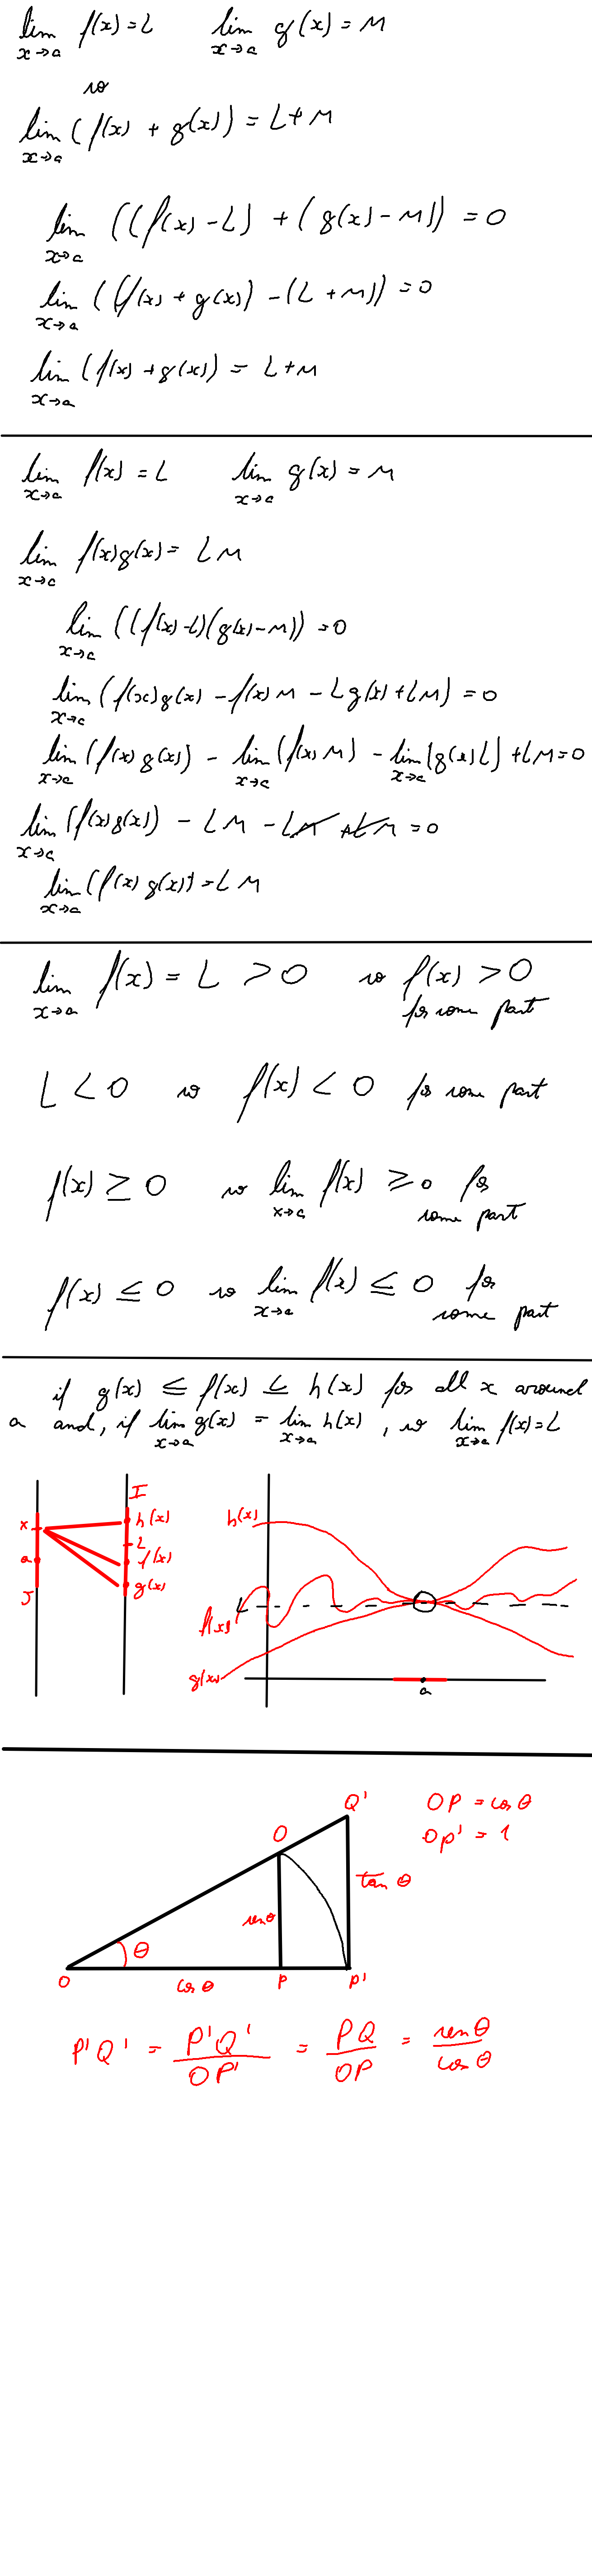 lim x→a f(x) = L lim x→a g(x) = M
so
lim x→a (f(x) + g(x)) = L+M
lim x→a ((f(x) - L) + (g(x) - M)) = 0
lim x→a ((f(x) + g(x)) - (L + M)) = 0
lim x→a (f(x) + g(x)) = L+M
lim x→a f(x) = L lim x→a g(x) = M
lim x→a f(x)g(x) = LM
lim x→a ((f(x)-L)(g(x)-M)) = 0
lim x→a (f(x)g(x) - f(x)M - Lg(x) + LM) = 0
lim x→a (f(x)g(x)) - lim x→a (f(x)M) - lim x→a (g(x)L) + LM = 0
lim x→a (f(x)g(x)) - LM - LM + LM = 0
lim x→a (f(x)g(x)) = LM
lim x→a f(x) = L > 0 so f(x) > 0
for some part
L < 0 so f(x) < 0 for some part
f(x) ≥ 0 so lim x→a f(x) ≥ 0 for
some part
f(x) ≤ 0 so lim x→a f(x) ≤ 0 for
some part
if g(x) ≤ f(x) ≤ h(x) for all x around
a and, if lim x→a g(x) = lim x→a h(x), so lim x→a f(x) = L
I
x
h(x)
L
a
f(x)
J
g(x)
h(x)
L
f(x)
g(x)
a
Q'
OP = cos θ
O
OP' = 1
tan θ
sen θ
θ
O
cos θ
P
P'
P'Q' = P'Q'/OP' = PQ/OP = sen θ/cos θ